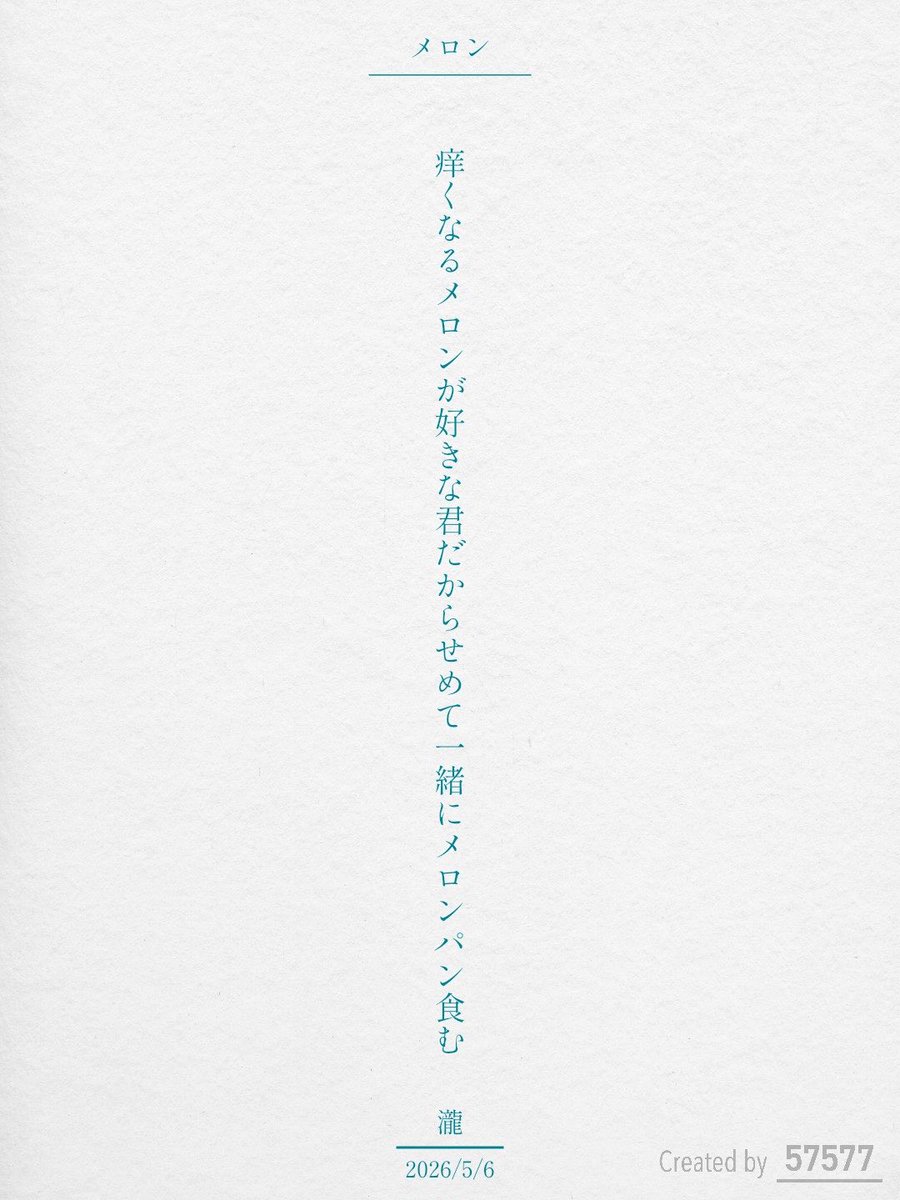 メロン
痒くなるメロンが好きな君だからせめて一緒にメロンパン食む
瀧
2026/5/6
Created by 57577